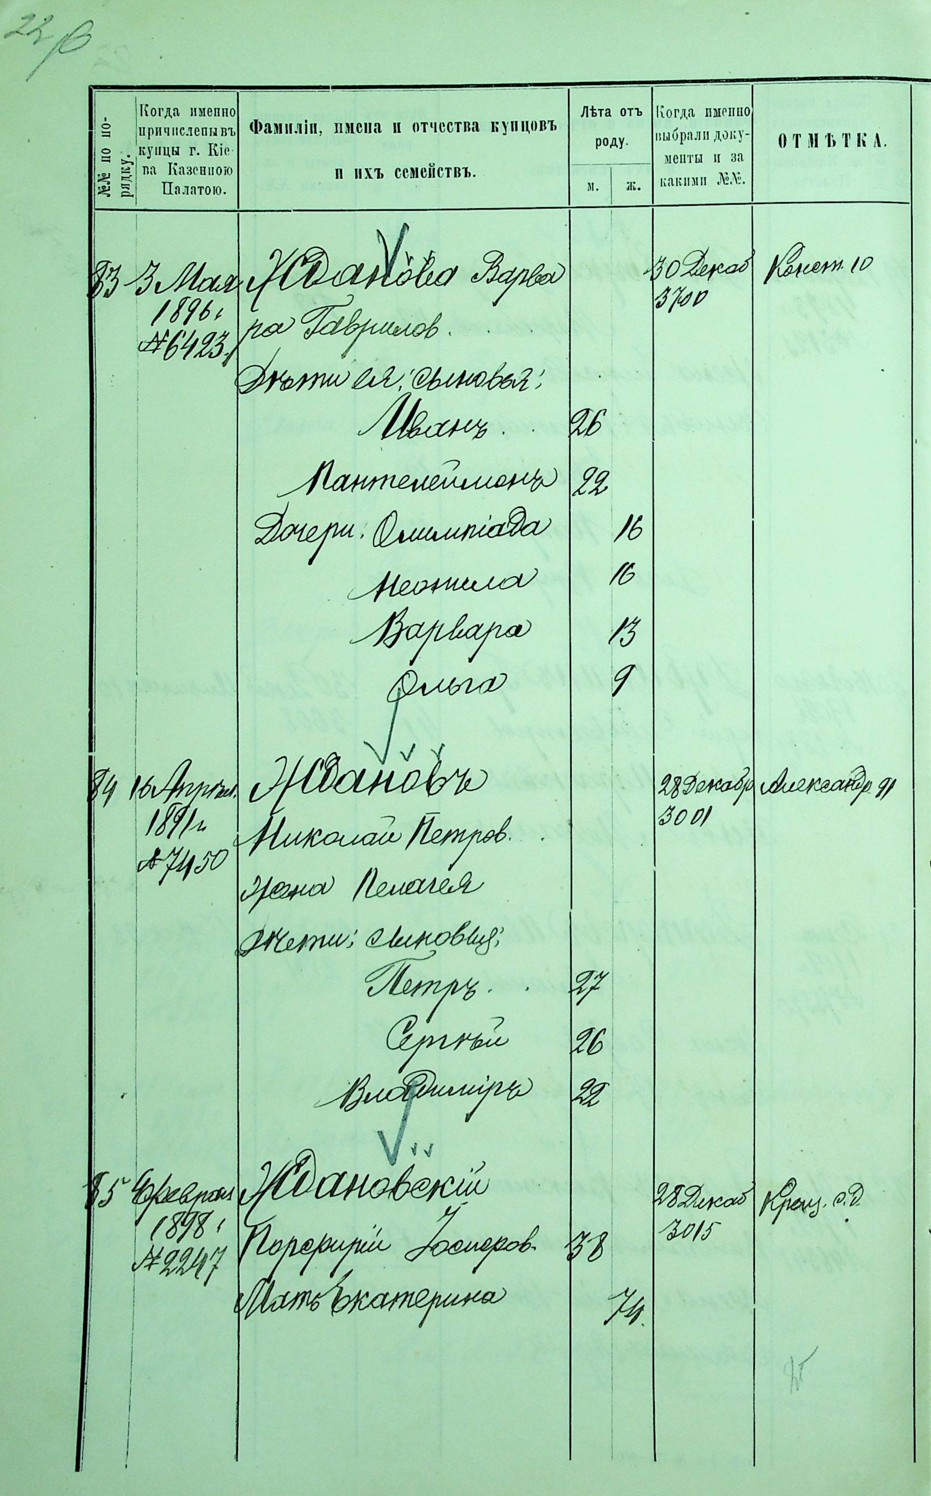 22
№№ по по-
рядку.
Когда именно
причислены въ
купцы г. Кіе-
ва Казенною
Палатою.
Фамиліи, имена и отчества купцовъ
и ихъ семействъ.
Лѣта отъ
роду.
м. ж.
Когда именно
выбрали доку-
менты и за
какими №№.
ОТМѢТКА.
83 3 Мая Жданова Варва 30 Декаб Конст. 10
1896 г 3700
№ 6423 ра Гаврилов.
Дѣти ея: сыновья:
Иванъ 26
Пантелеймонъ 22
Дочери: Олимпіада 16
Неонила 16
Варвара 13
Ольга 9
84 16 Апрѣл. Ждановъ 28 Декабр Александр 91
1891 г 3001
№ 7450 Николай Петров.
жена Пелагея
Дѣти: сыновья:
Петръ 27
Сергѣй 26
Владиміръ 22
85 Февраля Ждановскій 28 Декаб Крещ. с. д.
1898 г 3015
№ 2247 Порфирій Іосифов. 38
Мать Екатерина 74.